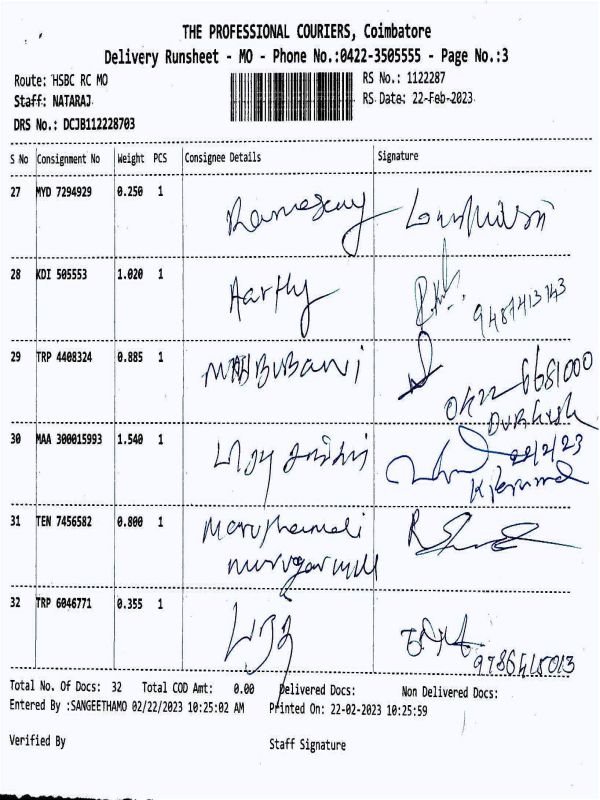 THE PROFESSIONAL COURIERS, Coimbatore
Delivery Runsheet - MO - Phone No.:0422-3505555 - Page No.:3
Route: HSBC RC MO RS No.: 1122287
Staff: NATARAJ RS Date: 22-Feb-2023
DRS No.: DCJB112228703
S No Consignment No Weight PCS Consignee Details Signature
27 MYD 7294929 0.250 1
28 KDI 505553 1.020 1 Aarthy
9487413743
29 TRP 4408324 0.885 1
0422 6681000
30 MAA 300015993 1.540 1
22/2/23
31 TEN 7456582 0.800 1
32 TRP 6046771 0.355 1
Total No. Of Docs: 32 Total COD Amt: 0.00 Delivered Docs: Non Delivered Docs:
Entered By :SANGEETHAMO 02/22/2023 10:25:02 AM Printed On: 22-02-2023 10:25:59
Verified By Staff Signature